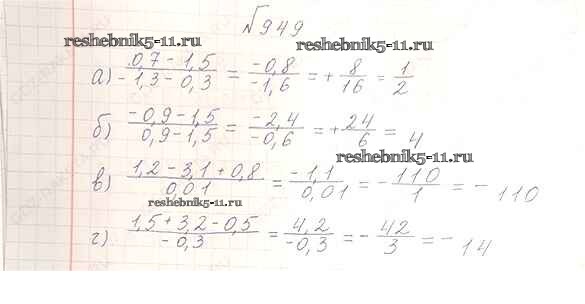 №949
reshebnik5-11.ru
а) (0,7 - 1,5)/(-1,3 - 0,3) = (-0,8)/(-1,6) = + 8/16 = 1/2
б) (-0,9 - 1,5)/(0,9 - 1,5) = (-2,4)/(-0,6) = + 24/6 = 4
reshebnik5-11.ru
в) (1,2 - 3,1 + 0,8)/(0,01) = (-1,1)/(0,01) = - 110/1 = - 110
reshebnik5-11.ru
г) (1,5 + 3,2 - 0,5)/(-0,3) = (4,2)/(-0,3) = - 42/3 = - 14